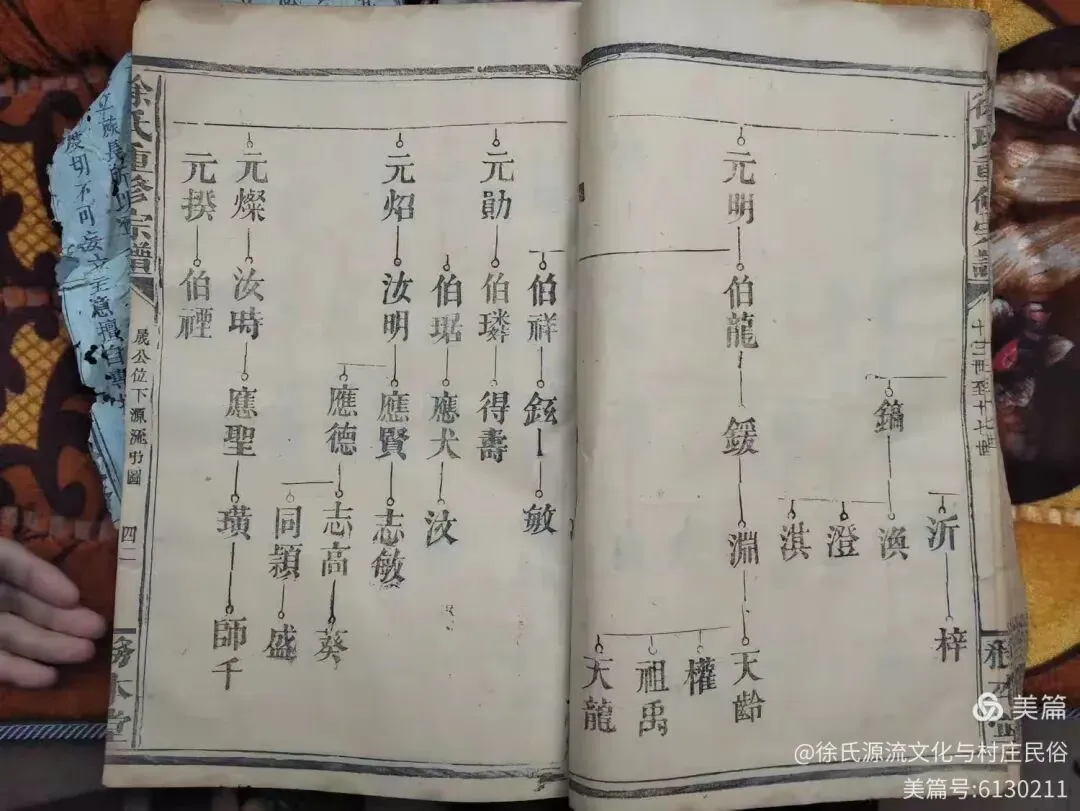 徐氏重修宗譜
十二世至十七世
沂
梓
鎬
渙
澄
淇
元明
伯龍
鍰
淵
天齡
權
祖禹
天龍
伯祥
鉉
敏
元勛
伯璘
得壽
伯琚
應犬
汝
元炤
汝明
應賢
志敏
應德
志高
葵
同穎
盛
元燦
汝時
應聖
璜
師千
元揆
伯禋
徐氏重修宗譜
晟公位下源流吊圖
四二
務本堂
美篇
@徐氏源流文化与村庄民俗
美篇号:6130211